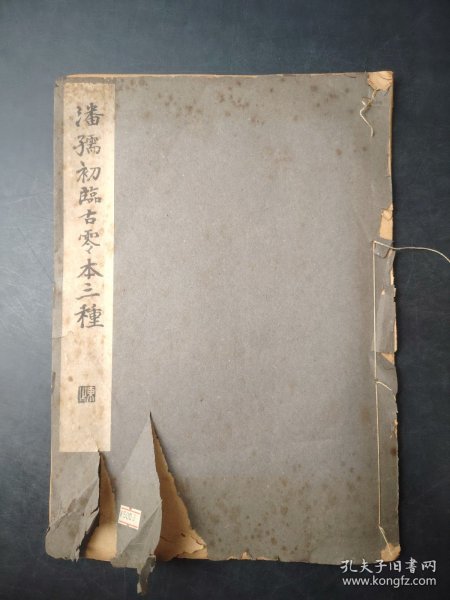 潘孺初臨古零本三種
孔夫子旧书网
www.kongfz.com